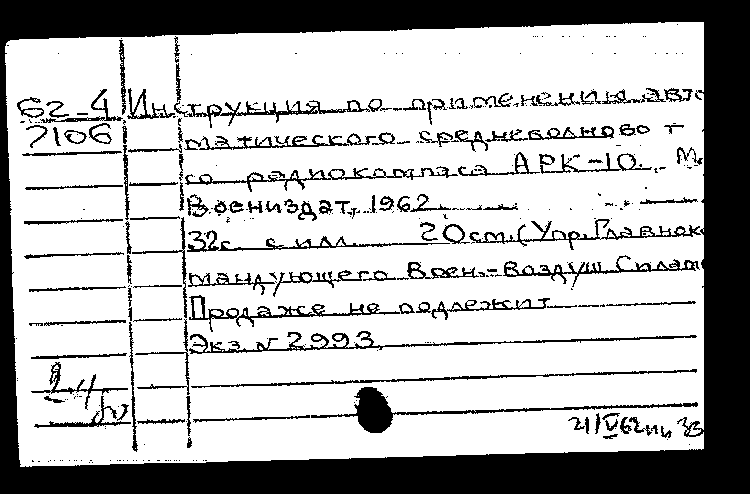 62-4 Инструкция по применению авто
7106 матического средневолново т
го радиокомпаса АРК-10. М.
Воениздат, 1962.
32с. с илл. 20см. (Упр. Главнок
мандующего Воен.-воздуш. Силам
Продаже не подлежит
Экз. N 2993
21/V 62